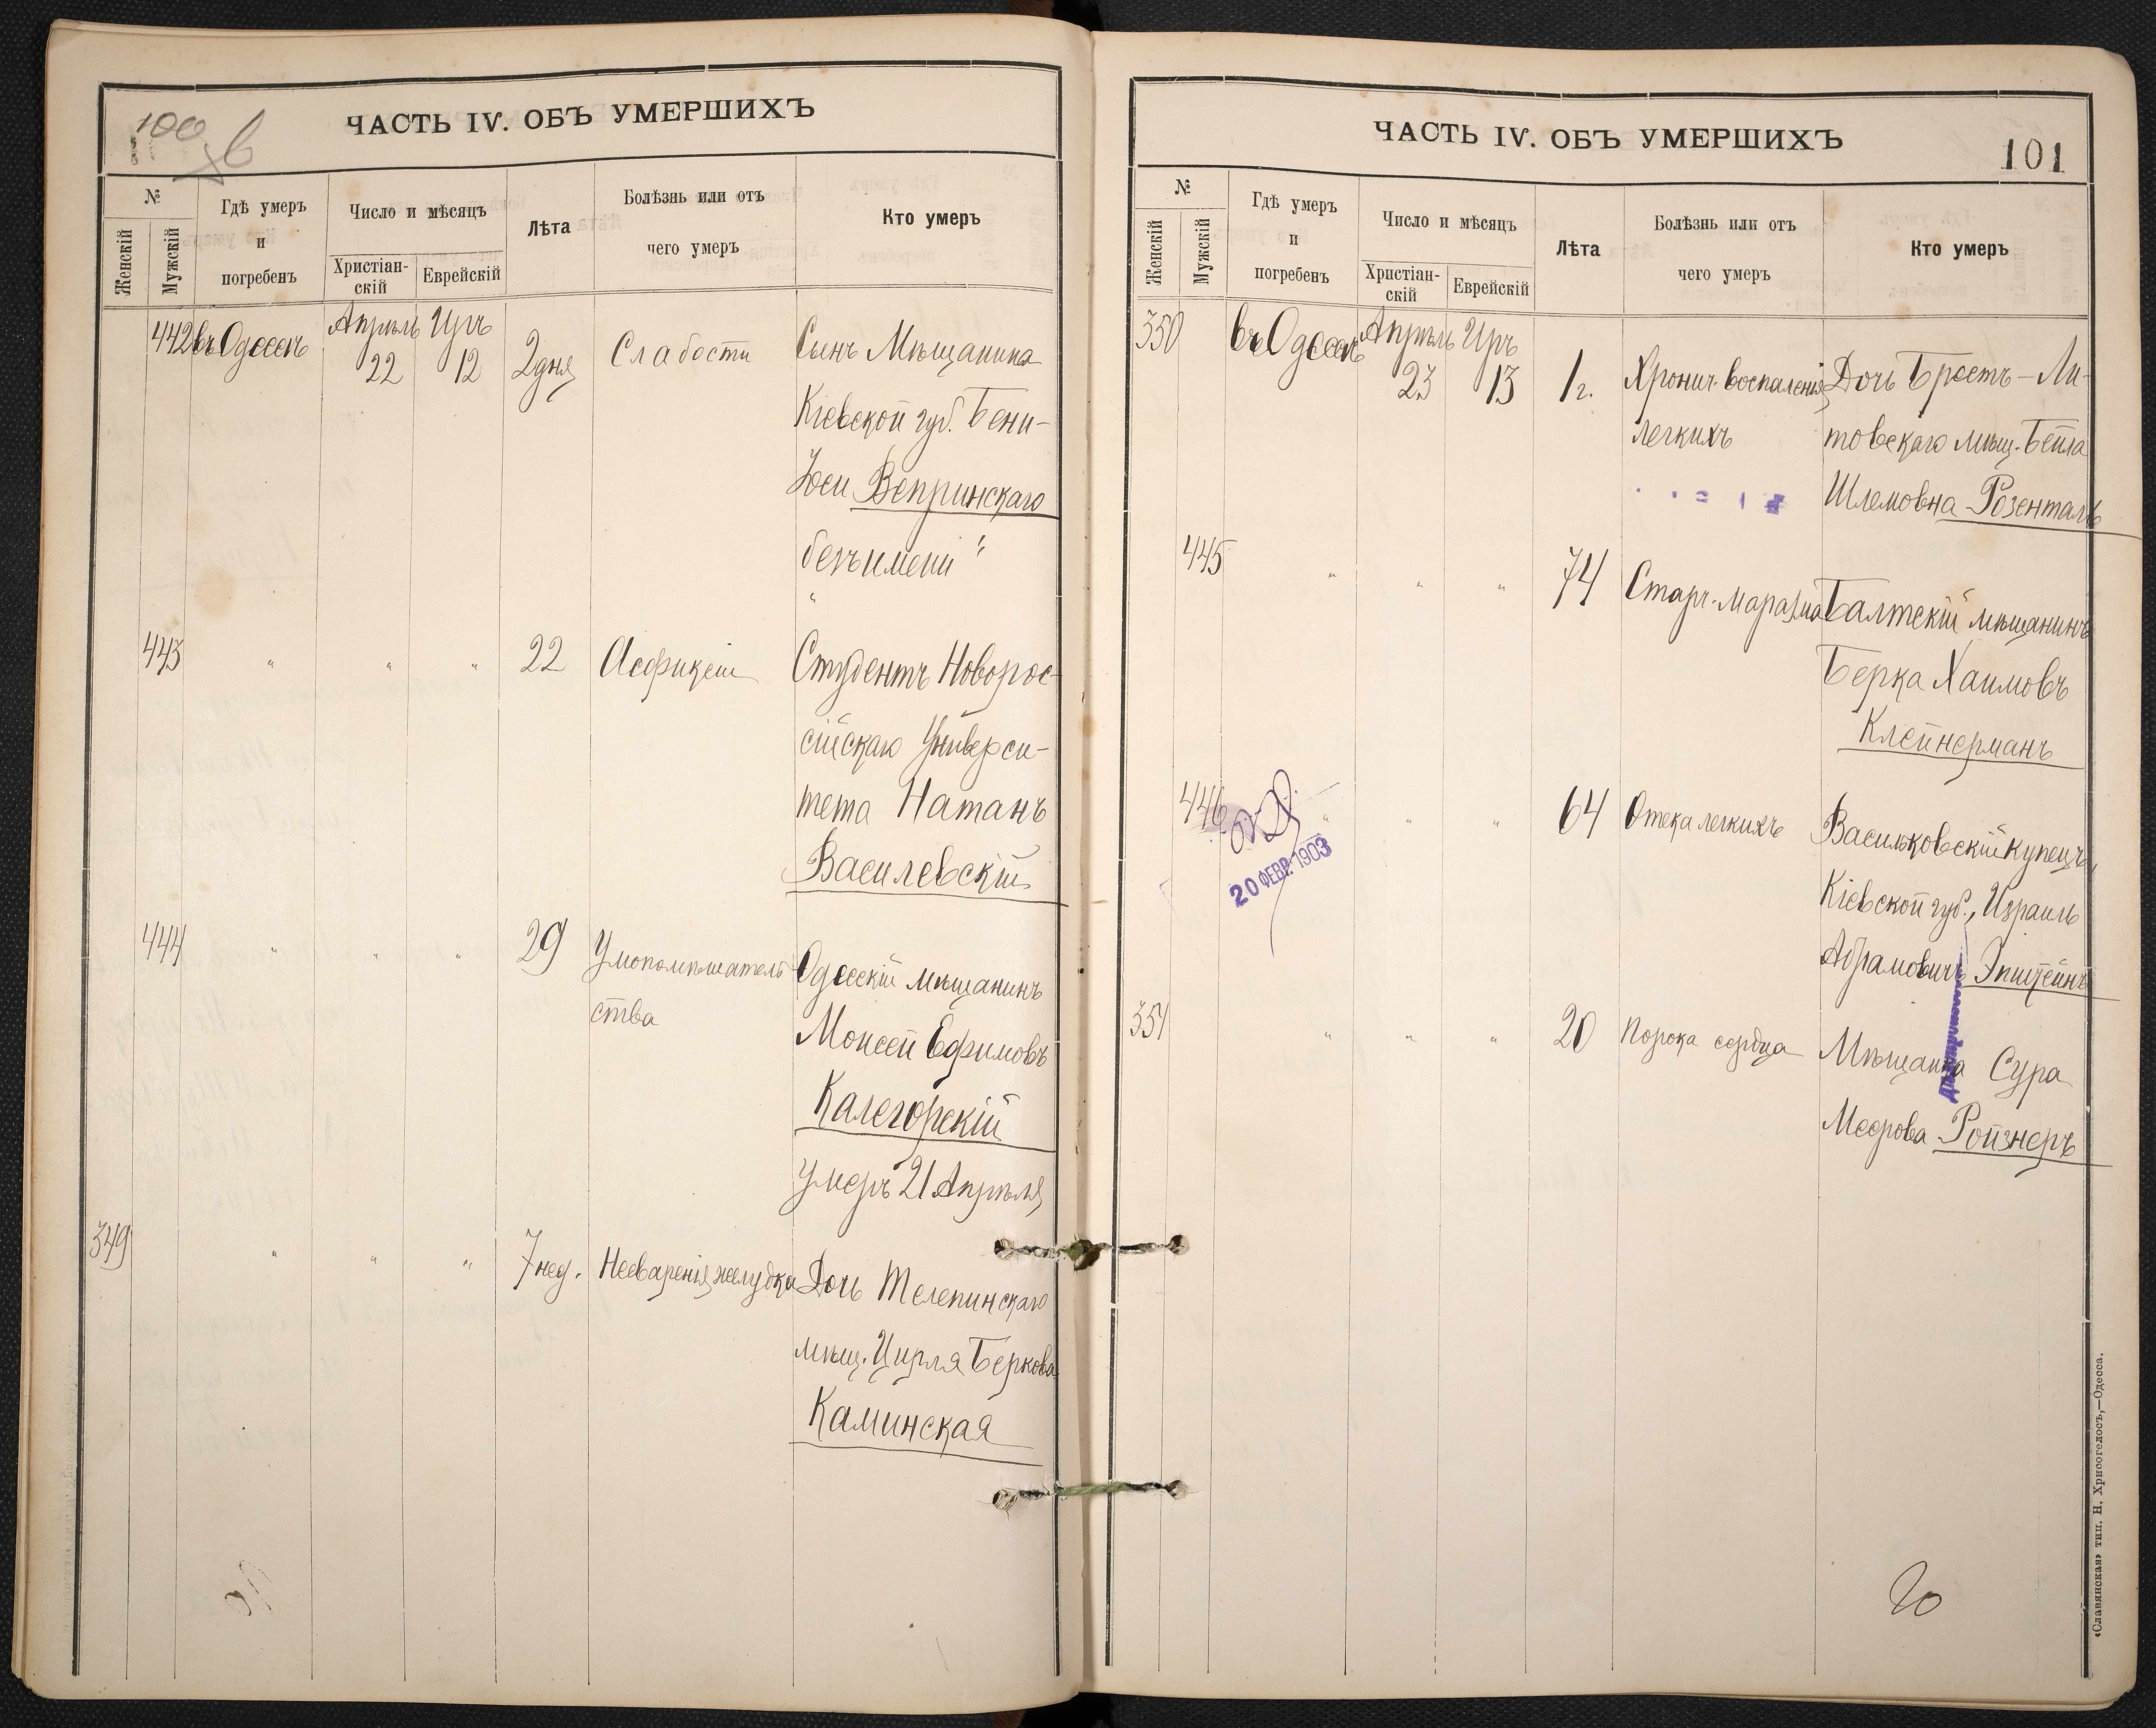 100
ЧАСТЬ IV. ОБЪ УМЕРШИХЪ
№
Женскій
Мужскій
Гдѣ умеръ
и
погребенъ
Число и мѣсяцъ
Христіан-
скій
Еврейскій
Лѣта
Болѣзнь или отъ
чего умеръ
Кто умеръ
442 въ Одессѣ Апрѣль 22 Иръ 12 2 дня Слабости Сынъ Мѣщанина
Кіевской губ. Бени-
Іоси Вепринскаго
безъ имени "
443 " " " 22 Асфиксіи Студентъ Новорос-
сійскаго Универси-
тета Натанъ
Василевскій
444 " " " 29 Умопомѣшатель Одесскій мѣщанинъ
ства Моисей Ефимовъ
Калегорскій
умеръ 21 Апрѣля
349 " " " 7 нед. Несваренія желудка Дочь Телепинскаго
мѣщ. Цирля Беркова
Каминская
ЧАСТЬ IV. ОБЪ УМЕРШИХЪ
101
№
Женскій
Мужскій
Гдѣ умеръ
и
погребенъ
Число и мѣсяцъ
Христіан-
скій
Еврейскій
Лѣта
Болѣзнь или отъ
чего умеръ
Кто умеръ
350 въ Одессѣ Апрѣль 23 Иръ 13 1 г. Хронич. воспаленія Дочь Брестъ-Ли-
легкихъ товскаго мѣщ. Бейла
Шлемовна Розенталь
445 " " " 74 Старч. маразма Балтскій мѣщанинъ
Берка Хаимовъ
Клейнерманъ
446 " " " 64 Отека легкихъ Васильковскій купецъ,
Кіевской губ., Израиль
Абрамовичъ Эпштейнъ
20 ФЕВР. 1903
351 " " " 20 Порока сердца Мѣщанка Сура
Меерова Ройзнеръ
«Славянская» тип. Н. Хрисогелосъ,—Одесса.